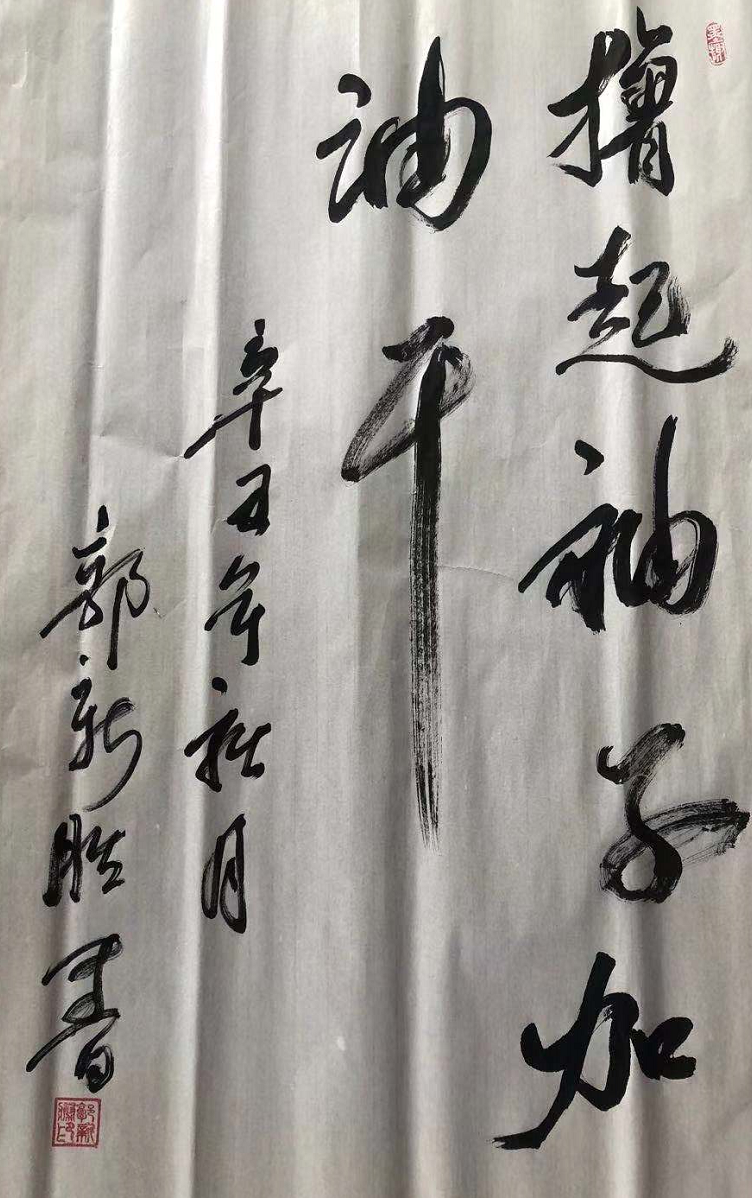 撸起袖子加
油干
辛丑年秋月
郭新胜书